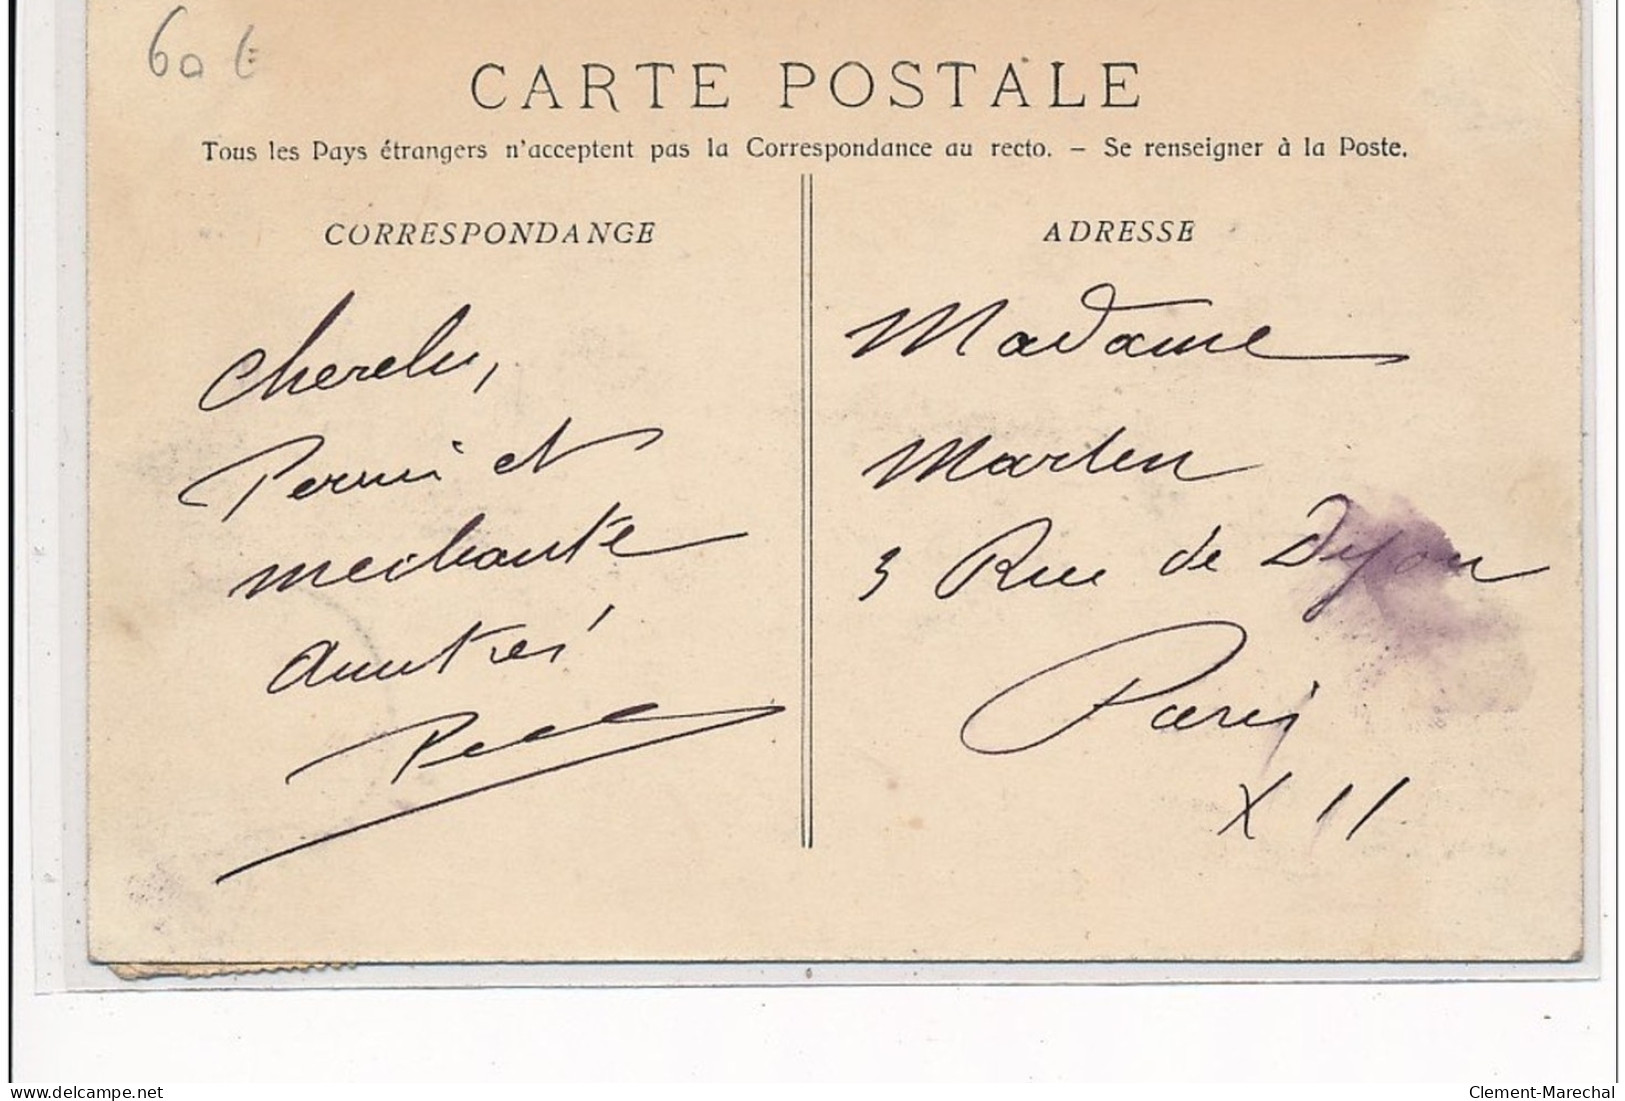 60 €
CARTE POSTALE
Tous les Pays étrangers n'acceptent pas la Correspondance au recto. – Se renseigner à la Poste.
CORRESPONDANCE
ADRESSE
et
mechante
Madame
3 Rue de Dijon
Paris
XII
delcampe.net
Clement-Marechal